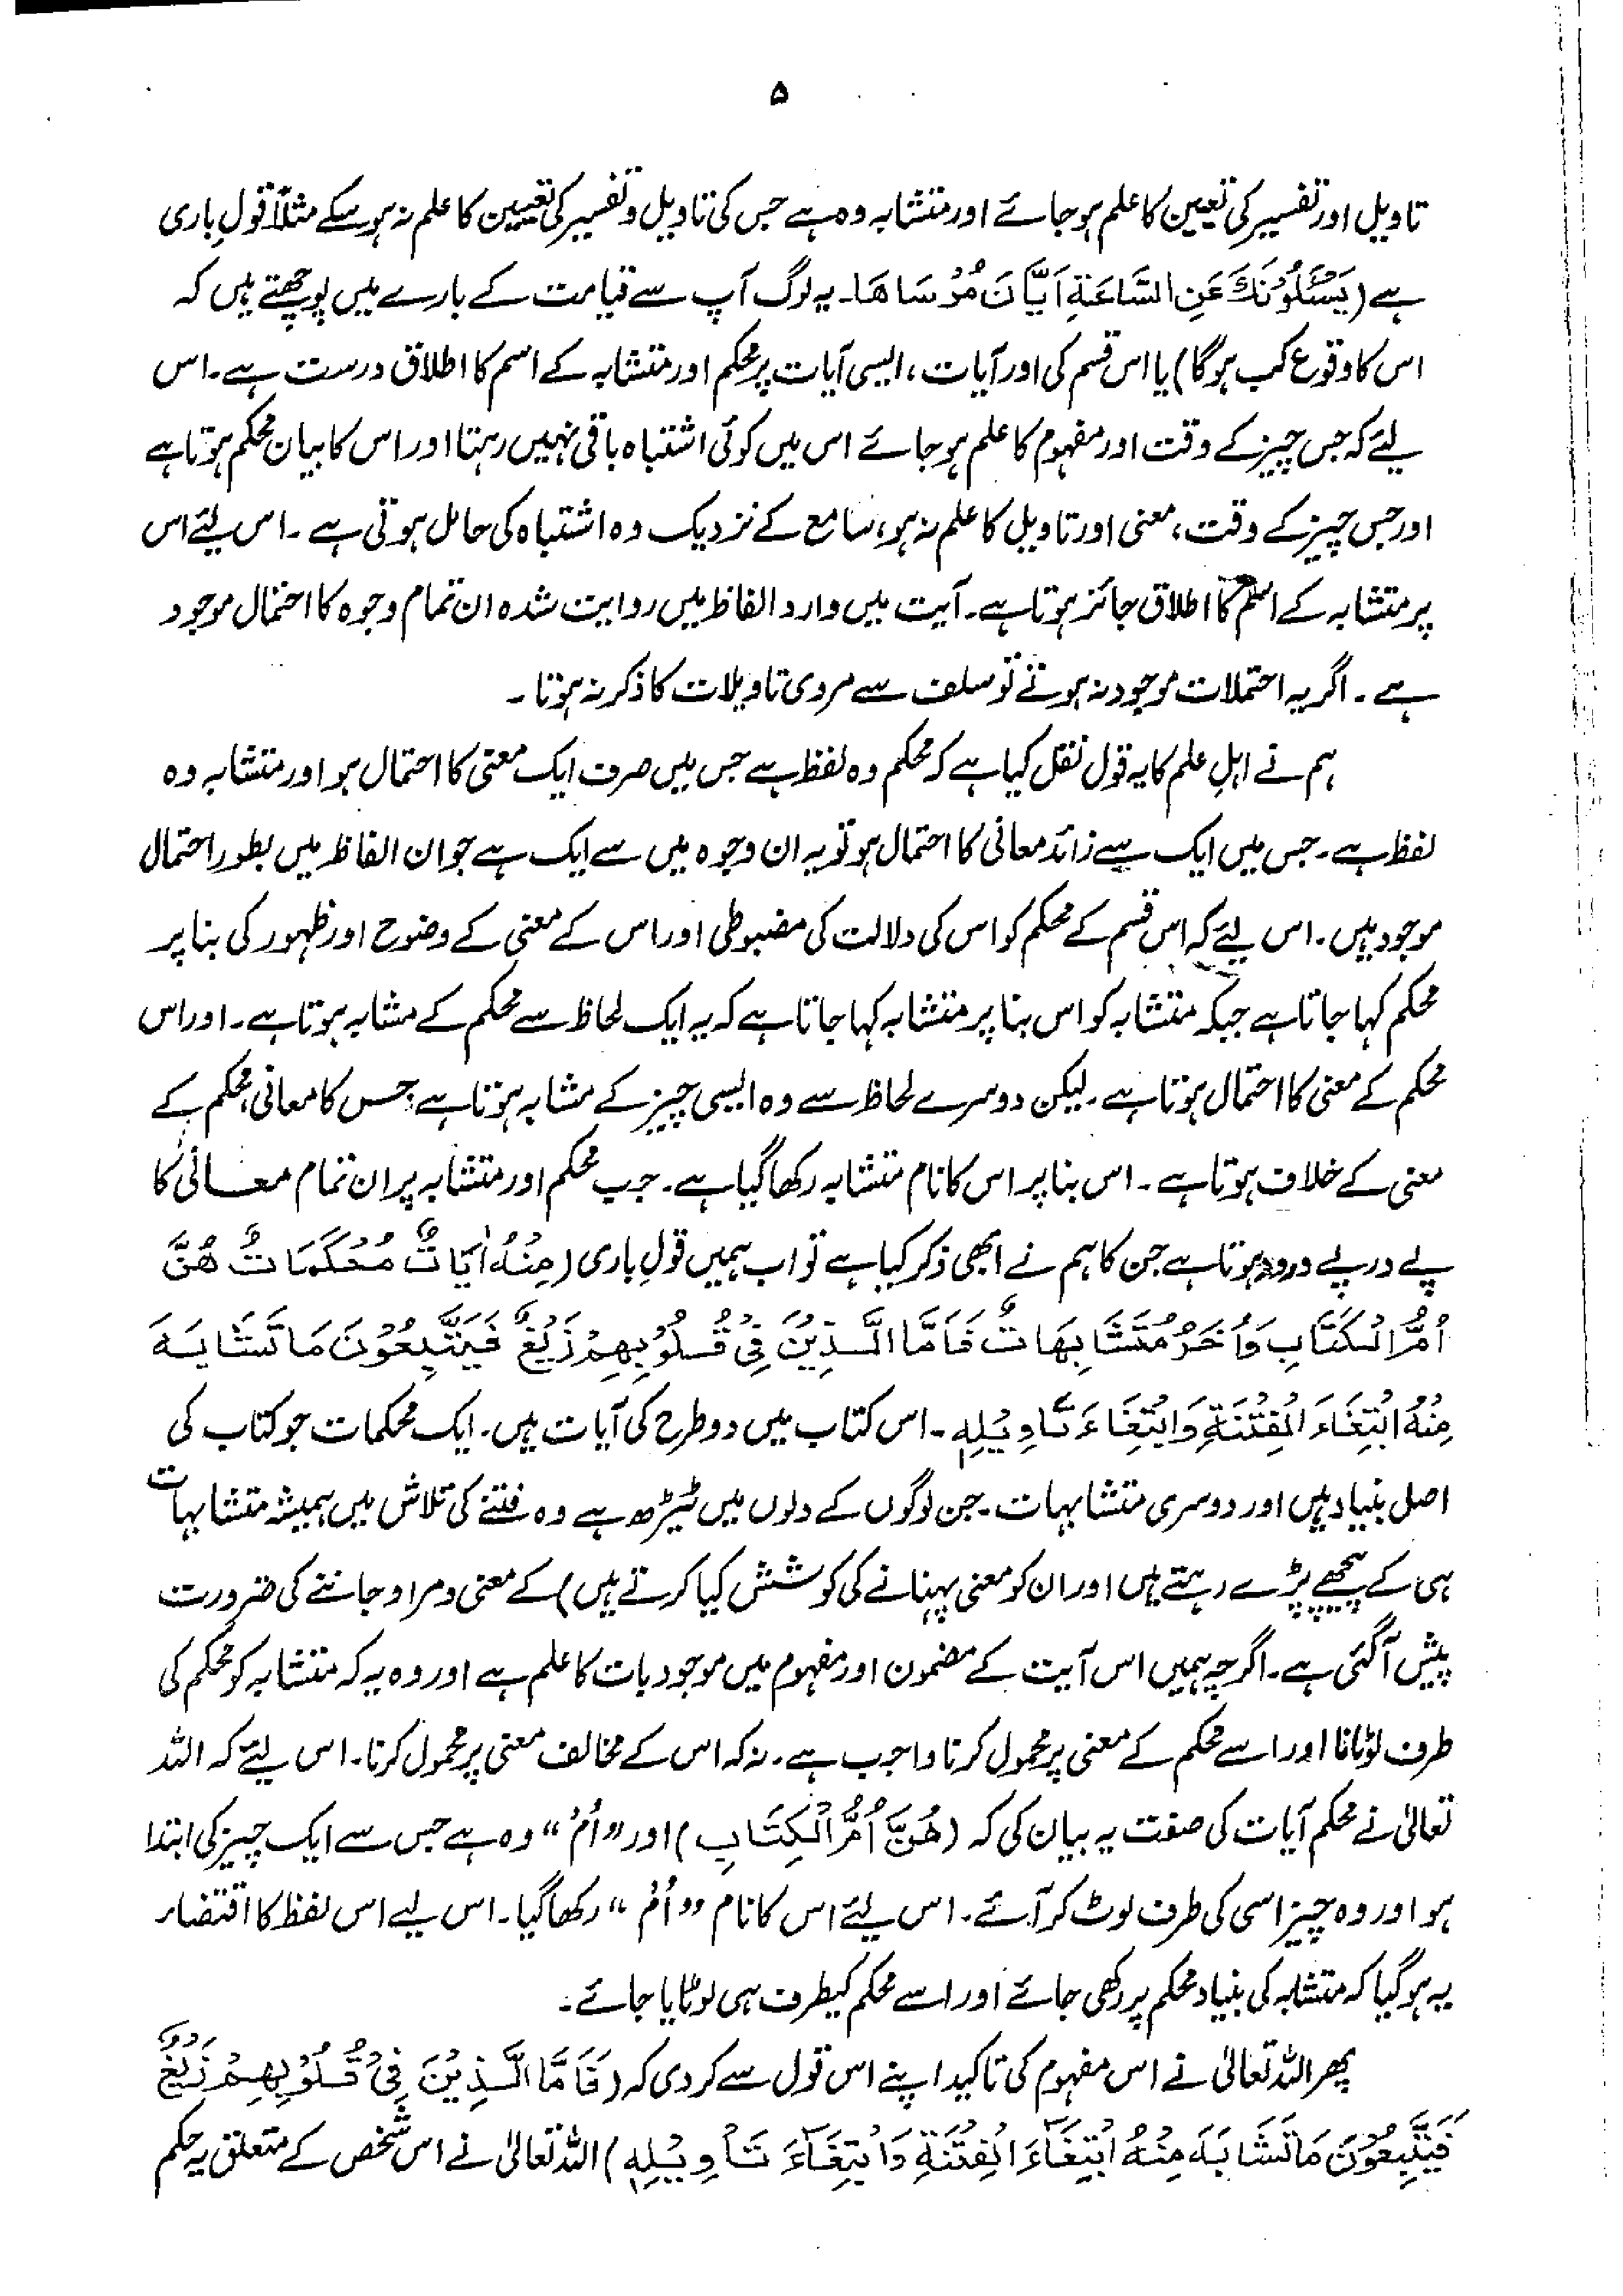 ۵
تاویل اور تفسیر کی تعیین کا علم ہو جائے اور متشابہ وہ ہے جس کی تاویل و تفسیر کی تعیین کا علم نہ ہو سکے مثلاً قولِ باری
ہے (یَسْئَلُوْنَكَ عَنِ السَّاعَۃِ اَیَّانَ مُرْسَاھَا۔ یہ لوگ آپ سے قیامت کے بارے میں پوچھتے ہیں کہ
اس کا وقوع کب ہوگا) یا اس قسم کی اور آیات، ایسی آیات پر محکم اور متشابہ کے اسم کا اطلاق درست ہے۔ اس
لئے کہ جس چیز کے وقت اور مفہوم کا علم ہو جائے اس میں کوئی اشتباہ باقی نہیں رہتا اور اس کا بیان محکم ہوتا ہے
اور جس چیز کے وقت، معنی اور تاویل کا علم نہ ہو، سامع کے نزدیک وہ اشتباہ کی حامل ہوتی ہے۔ اس لئے اس
پر متشابہ کے اسم کا اطلاق جائز ہوتا ہے۔ آیت میں وارد الفاظ میں روایت شدہ ان تمام وجوہ کا احتمال موجود
ہے۔ اگر یہ احتملات موجود نہ ہوتے تو سلف سے مروی تاویلات کا ذکر نہ ہوتا۔
ہم نے اہلِ علم کا یہ قول نقل کیا ہے کہ محکم وہ لفظ ہے جس میں صرف ایک معنی کا احتمال ہو اور متشابہ وہ
لفظ ہے۔ جس میں ایک سے زائد معانی کا احتمال ہو تو یہ ان وجوہ میں سے ایک ہے جو ان الفاظ میں بطور احتمال
موجود ہیں۔ اس لئے کہ اس قسم کے محکم کو اس کی دلالت کی مضبوطی اور اس کے معنی کے وضوح اور ظہور کی بنا پر
محکم کہا جاتا ہے جبکہ متشابہ کو اس بنا پر متشابہ کہا جاتا ہے کہ یہ ایک لحاظ سے محکم کے مشابہ ہوتا ہے۔ اور اس
محکم کے معنی کا احتمال ہوتا ہے۔ لیکن دوسرے لحاظ سے وہ ایسی چیز کے مشابہ ہوتا ہے جس کا معانی محکم کے
معنی کے خلاف ہوتا ہے۔ اس بنا پر اس کا نام متشابہ رکھا گیا ہے۔ جب محکم اور متشابہ پر ان تمام معانی کا
پے در پے ورود ہوتا ہے جن کا ہم نے ابھی ذکر کیا ہے تو اب ہمیں قولِ باری (مِنْہُ اٰیَاتٌ مُحْکَمَاتٌ ھُنَّ
اُمُّ الْکِتَابِ وَاُخَرُ مُتَشَابِھَاتٌ فَاَمَّا الَّذِیْنَ فِیْ قُلُوْبِھِمْ زَیْغٌ فَیَتَّبِعُوْنَ مَا تَشَابَہَ
مِنْہُ ابْتِغَاءَ الْفِتْنَۃِ وَابْتِغَاءَ تَاوِیْلِہٖ۔ اس کتاب میں دو طرح کی آیات ہیں۔ ایک محکمات جو کتاب کی
اصل بنیاد ہیں اور دوسری متشابہات۔ جن لوگوں کے دلوں میں ٹیڑھ ہے وہ فتنے کی تلاش میں ہمیشہ متشابہات
ہی کے پیچھے پڑے رہتے ہیں اور ان کو معنی پہنانے کی کوشش کیا کرتے ہیں) کے معنی و مراد جاننے کی ضرورت
پیش آگئی ہے۔ اگرچہ ہمیں اس آیت کے مضمون اور مفہوم میں موجود بات کا علم ہے اور وہ یہ کہ متشابہ کو محکم کی
طرف لوٹانا اور اسے محکم کے معنی پر محمول کرنا واجب ہے۔ نہ کہ اس کے مخالف معنی پر محمول کرنا۔ اس لئے کہ اللہ
تعالیٰ نے محکم آیات کی صفت یہ بیان کی کہ (ھُنَّ اُمُّ الْکِتَابِ) اور "اُمُ" وہ ہے جس سے ایک چیز کی ابتدا
ہو اور وہ چیز اسی کی طرف لوٹ کر آئے۔ اس لئے اس کا نام "اُمُ" رکھا گیا۔ اس لیے اس لفظ کا اقتضاء
یہ ہوگیا کہ متشابہ کی بنیاد محکم پر رکھی جائے اور اسے محکم کیطرف ہی لوٹایا جائے۔
پھر اللہ تعالیٰ نے اس مفہوم کی تاکید اپنے اس قول سے کر دی کہ (فَاَمَّا الَّذِیْنَ فِیْ قُلُوْبِھِمْ زَیْغٌ
فَیَتَّبِعُوْنَ مَا تَشَابَہَ مِنْہُ ابْتِغَآءَ الْفِتْنَۃِ وَابْتِغَآءَ تَاْوِیْلِہٖ) اللہ تعالیٰ نے اس شخص کے متعلق یہ حکم